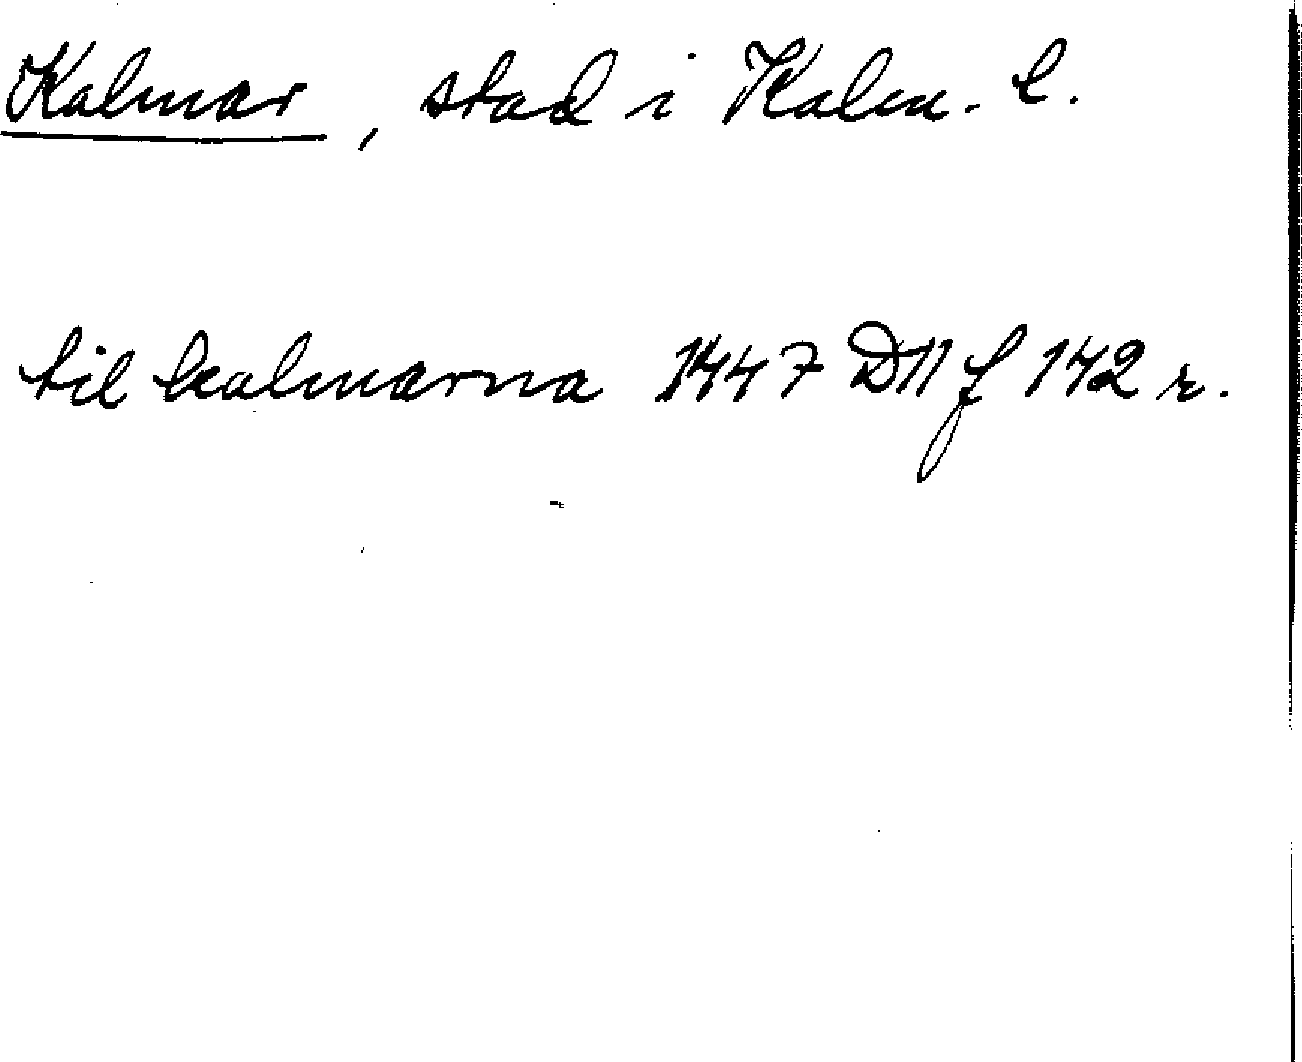 Kalmar, stad i Kalm. l.
til kalmarna 1447 D11 f 142 r.